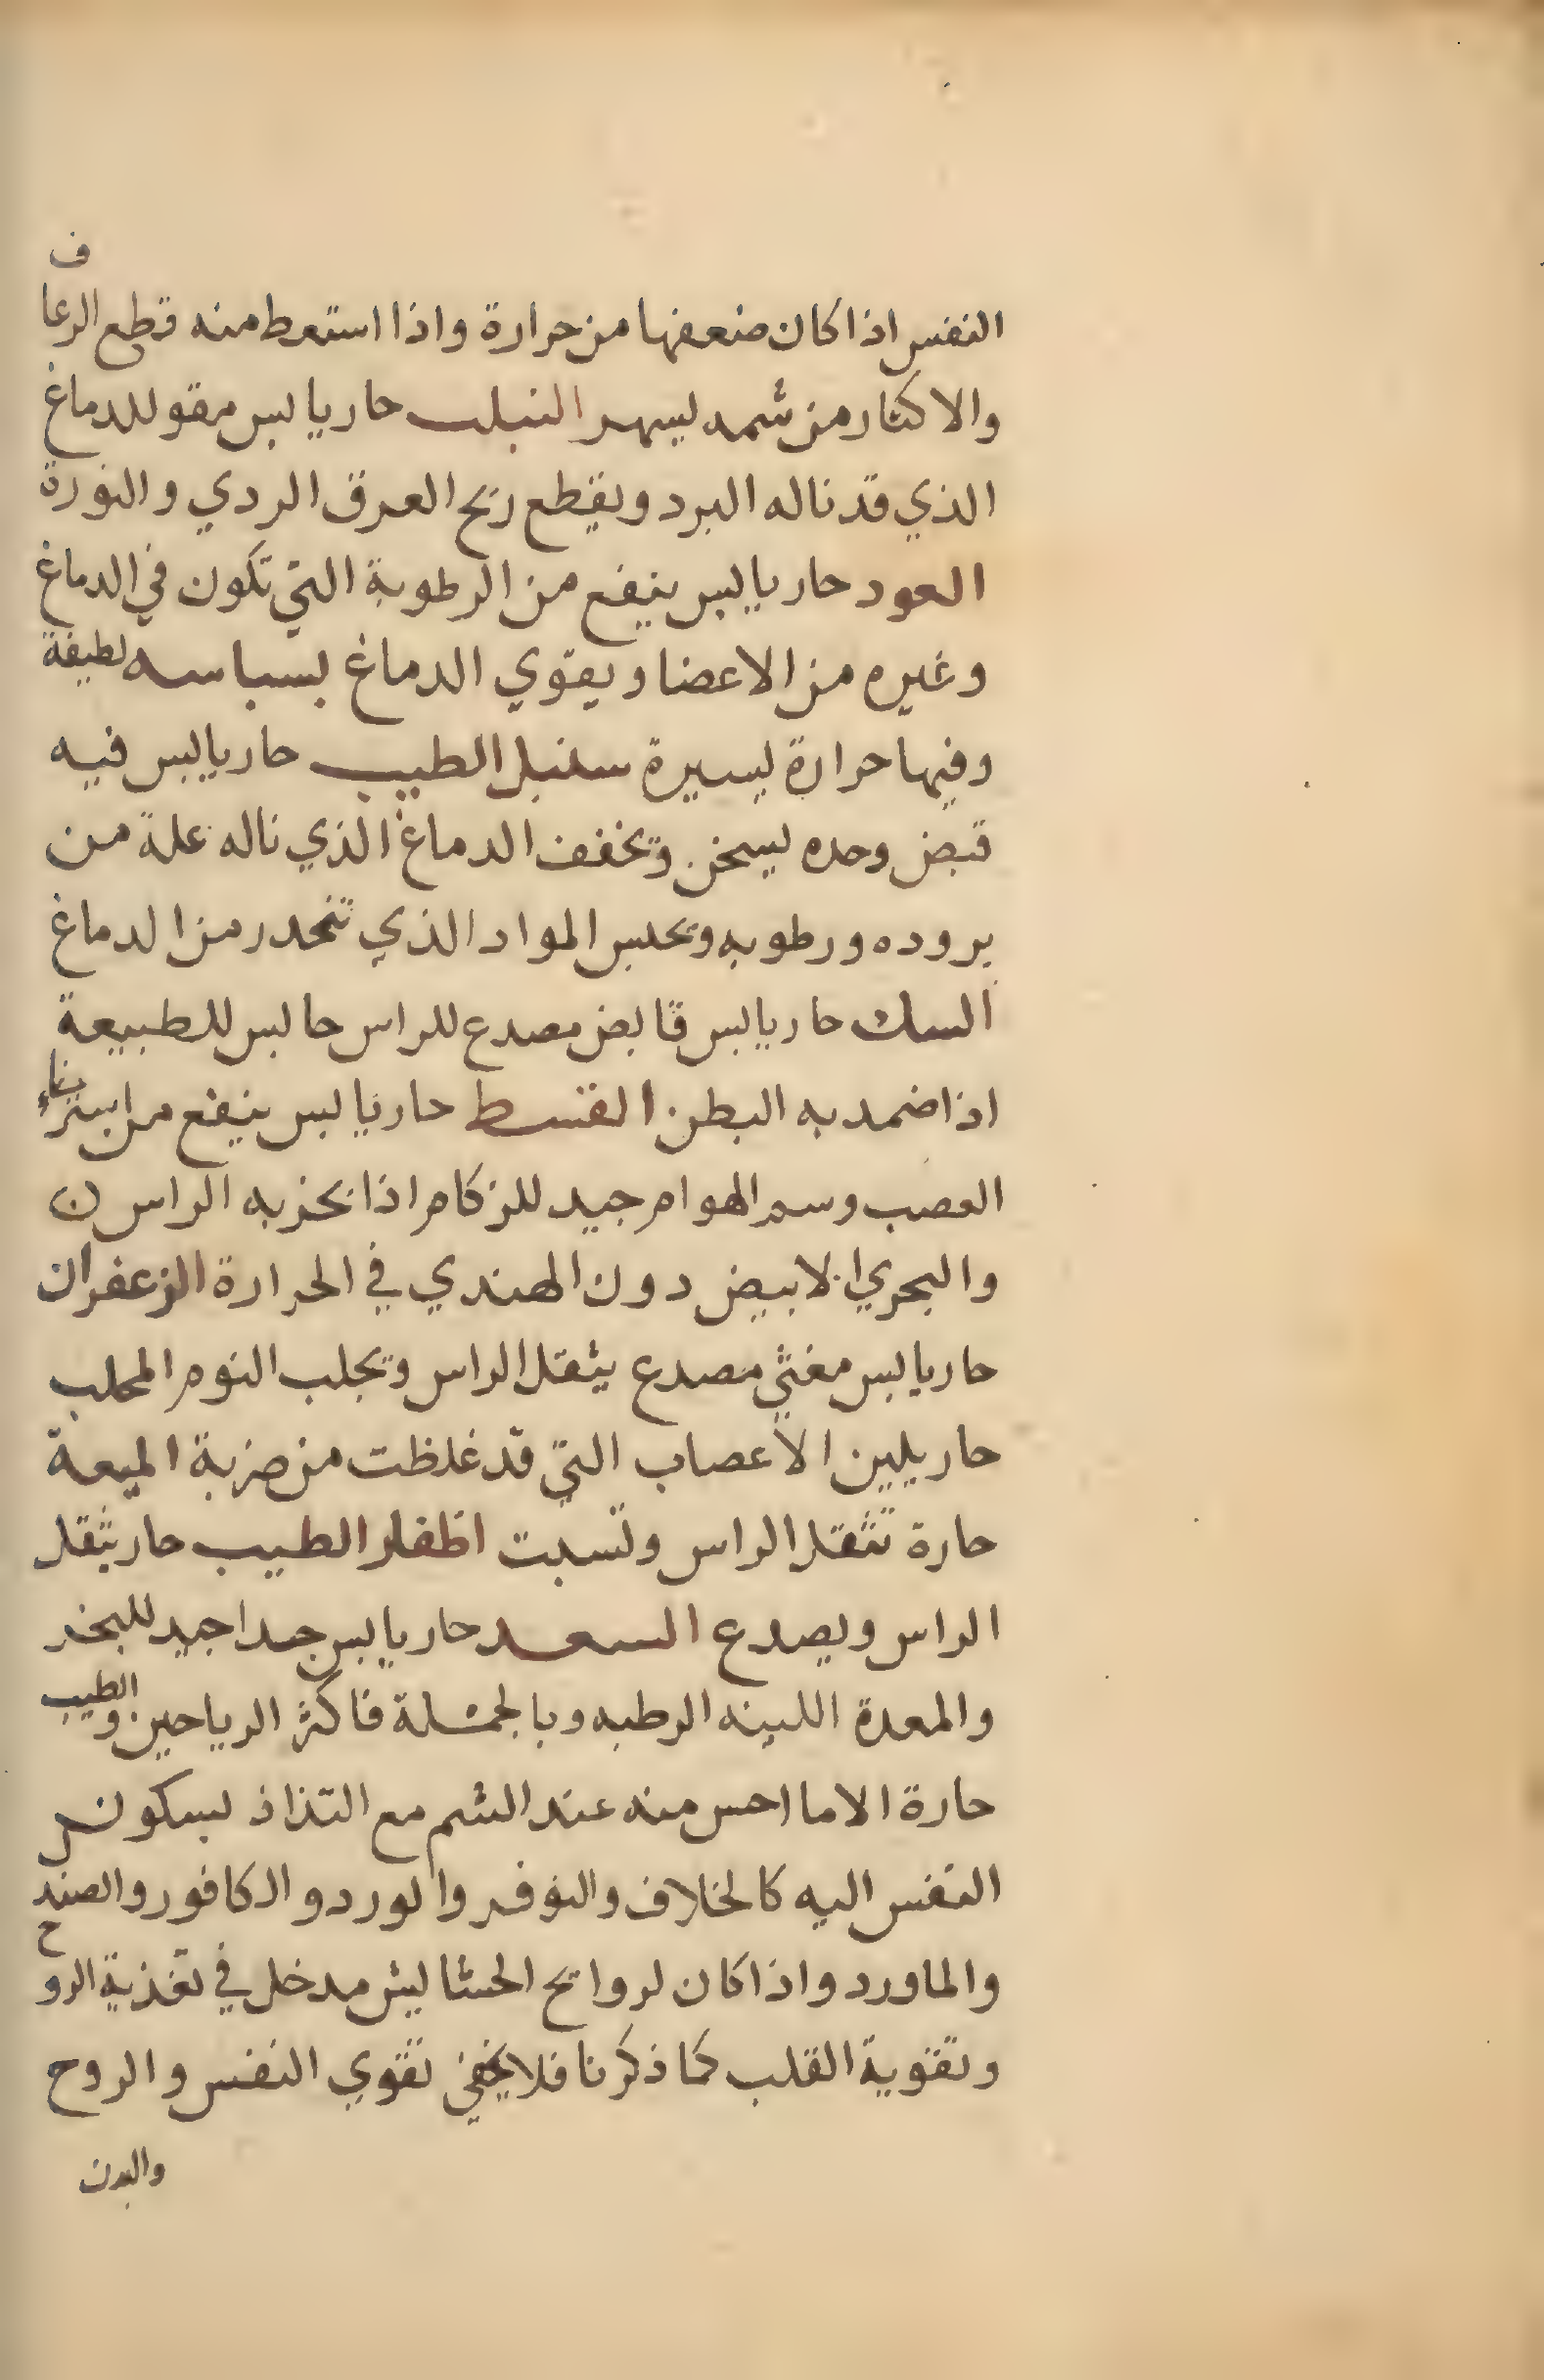 النفس اذا كان ضعفها من حرارة واذا استعط منه قطع الرعاف
والاكثار من شمه يسهر النبلـ حار يابس مقو للدماغ
الذي قد ناله البرد ويقطع ريح العرق الردي والنورة
العود حار يابس ينفع من الرطوبة التي تكون في الدماغ
وغيره من الاعضا ويقوي الدماغ بسباسه لطيفة
وفيها حرارة يسيرة سنبل الطيب حار يابس فيه
قبض وحده يسخن ويخفف الدماغ الذي ناله علة من
بروده ورطوبه ويحبس المواد الذي تنحدر من الدماغ
السك حار يابس قابض مصدع للراس حابس للطبيعة
اذا ضمد به البطن القسط حار يابس ينفع من استرخاء
العصب وسم الهوام جيد للزكام اذا بخر به الراس ن
والبحري الابيض دون الهندي في الحرارة الزعفران
حار يابس مغثي مصدع يثقل الراس ويجلب النوم المحلب
حار يلين الاعصاب التي قد غلظت من ضربة الميعة
حارة تثقل الراس وتسبت اظفار الطيب حار يثقل
الراس ويصدع السعد حار يابس جدا جيد للبخر
والمعدة اللينه الرطبه وبالجملة فاكثر الرياحين والطيب
حارة الا ما احس منه عند الشم مع التذاذ بسكون
النفس اليه كالخلاف والنوفر والورد والكافور والصندل
والماورد واذا كان لروايح الحشايش مدخل في تغذية الروح
وتقوية القلب كما ذكرنا فلا يخفى تقوي النفس والروح
والبدن